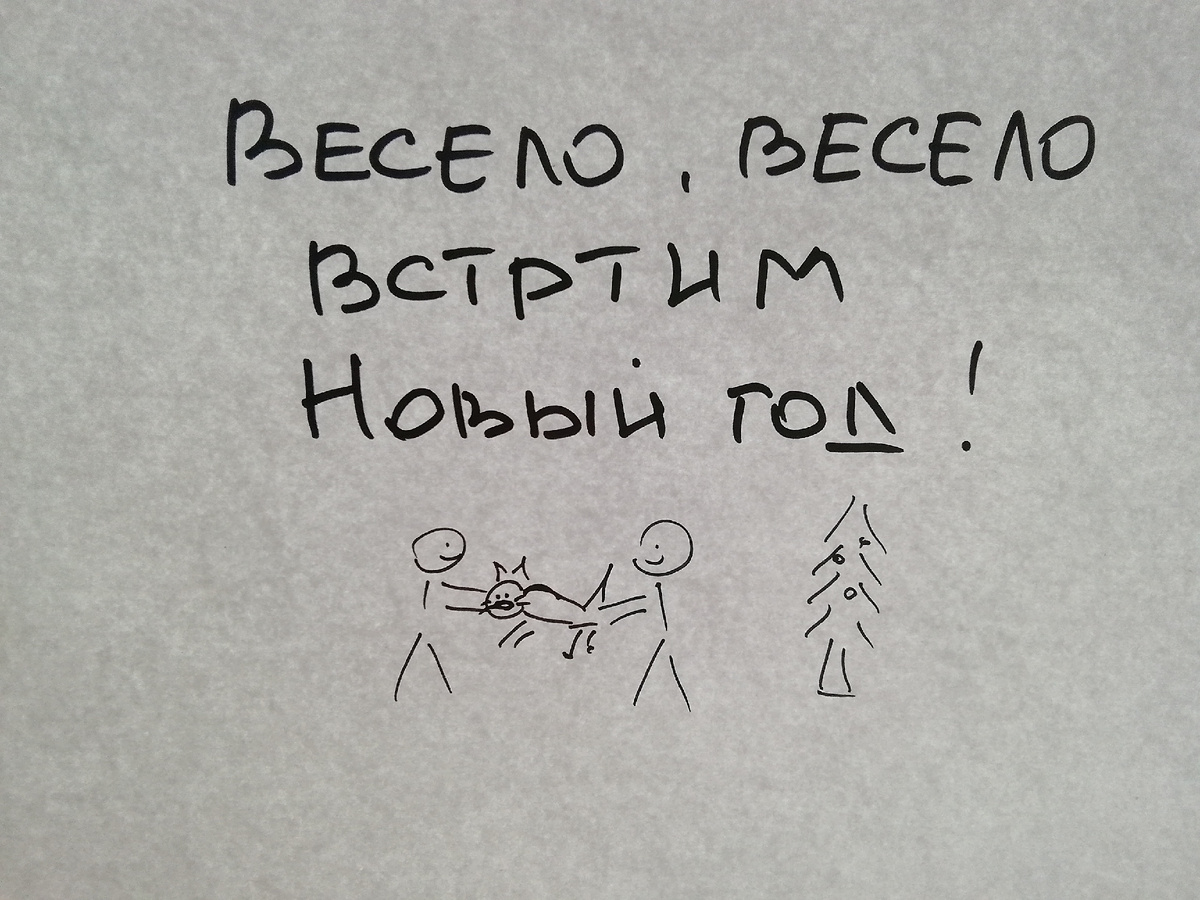 Весело, весело
встртим
Новый год!